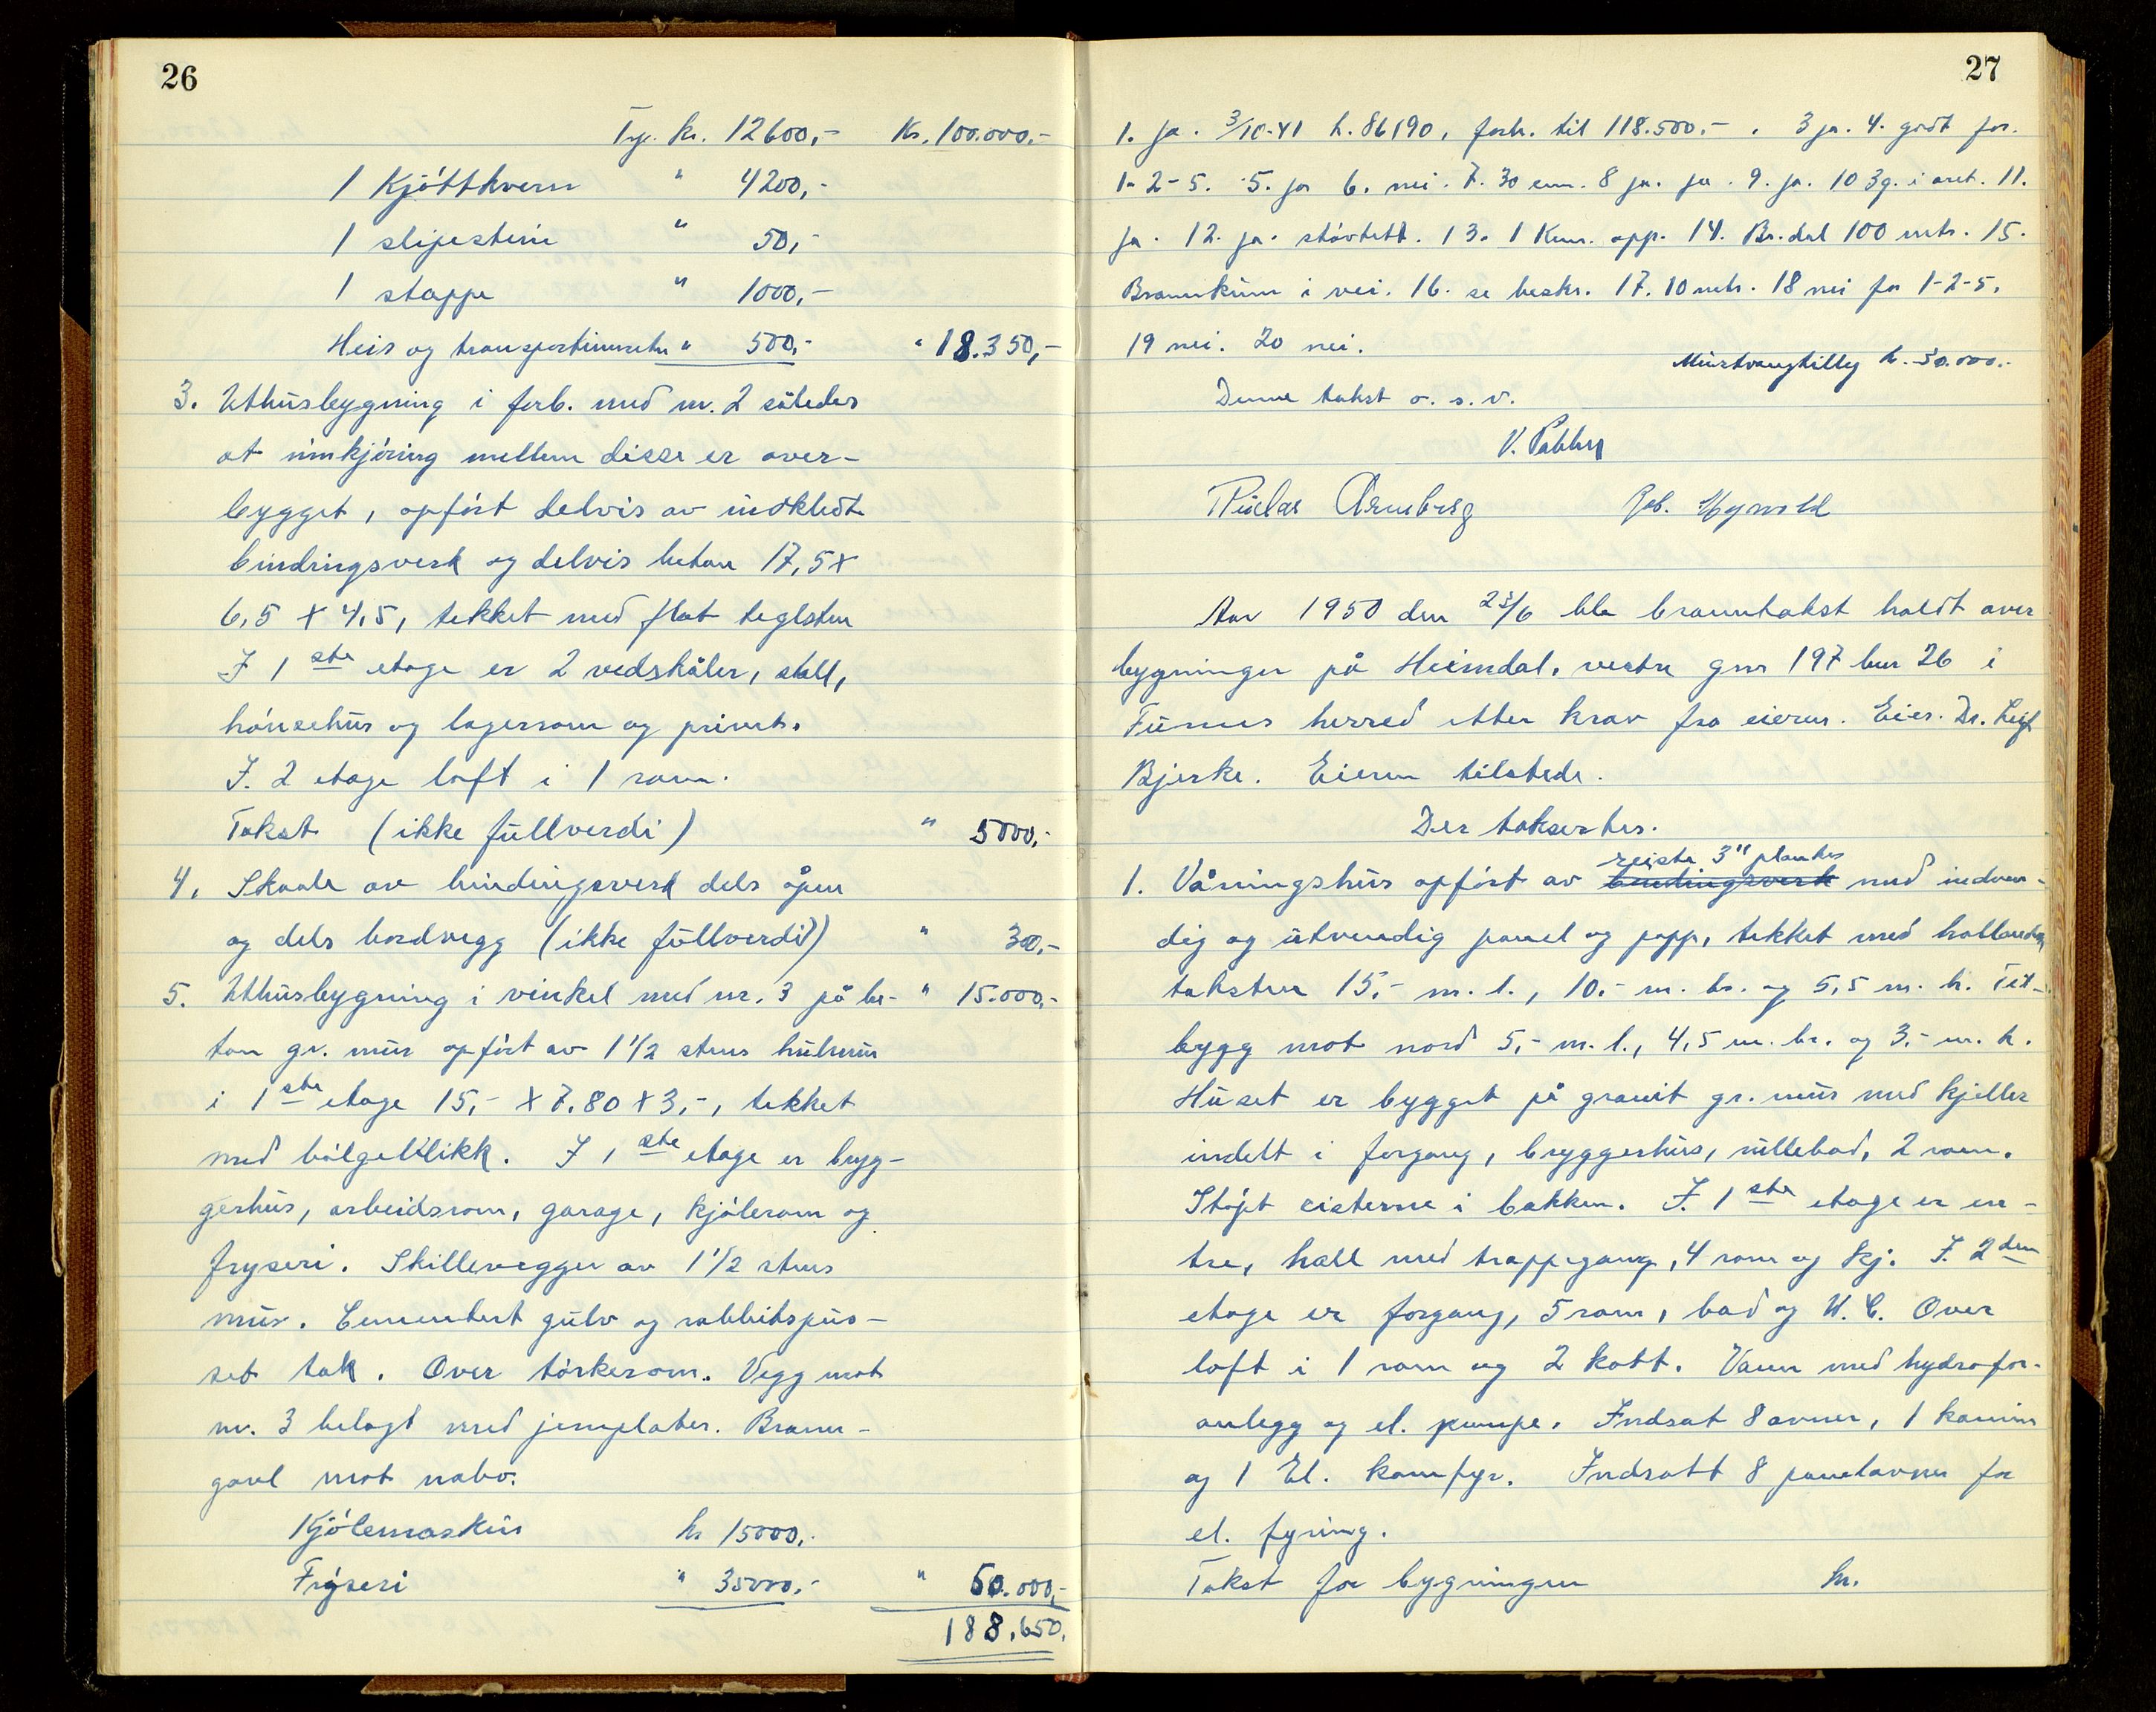 26
Trp. kr. 12600,- Kr. 100.000.-
1 Kjøttkvern " 4200,-
1 slipestein " 50,-
1 stappe " 1000,-
Heis og transportinnretn " 500,- " 18.350,-
3. Uthusbygning i forb. med nr. 2 således
at innkjøring mellem disse er over-
bygget, opført delvis av utvkledt
bindingsverk og delvis betong 17,5 x
6,5 x 4,5, tekket med flat teglsten
I 1ste etage er 2 vedskåler, stall,
hønsehus og lagerrom og privet.
I. 2 etage loft i 1 rom.
Takst (ikke fullverdi) " 5000,-
4. Skaale av bindingsverk dels åpen
og dels bordvegg (ikke fullverdi) " 300,-
5. Uthusbygning i vinkel med nr. 3 på be- " 15.000,-
ton gr. mur opført av 1 1/2 stens hulmur
i 1ste etage 15,- x 7,80 x 3,-, tekket
med bølgeblikk. I 1ste etage er bryg-
gerhus, arbeidsrom, garage, kjølerom og
fryseri. Skillevegger av 1 1/2 stens
mur. Cementert gulv og rabbitspus-
set tak. Over tørkerom. Vegg mot
nr. 3 belagt med jernplater. Brann-
gavl mot nabo.
Kjølemaskin kr 15000,-
Fryseri " 35000,- " 50.000,-
188.650,
27
1. ja. 3/10-41 k. 86190, forh. til 118.500.- . 3 ja. 4. godt for.
1-2-5. 5. ja 6. nei. 7. 30 cm. 8 ja. ja. 9. ja. 10 3 g. i året. 11.
ja. 12. ja. støvtett. 13. 1 Km. opp. 14. Br.dal 100 mtr. 15.
Brannkum i vei. 16. se beskr. 17. 10 mtr. 18 nei for 1-2-5.
19 nei. 20 nei.
Murtvangtillegg k. 50.000.-
Denne takst o. s. v.
Aar 1950 den 23/6 ble branntakst holdt over
bygninger på Heimdal, vestre gnr 197 bnr 26 i
Furnes herred etter krav fra eieren. Eier. Dr. Leif
Bjerke. Eieren tilstede.
Der takseres.
reiste 3" planker
1. Våningshus opført av bindingsverk med indven-
dig og utvendig panel og papp, tekket med hollandsk
taksten 15,- m. l., 10,- m. br. og 5,5 m. h. Til-
bygg mot nord 5,- m. l., 4,5 m. br. og 3,- m. h.
Huset er bygget på granit gr. mur med kjeller
indelt i forgang, bryggerhus, rullebod, 2 rom.
Støpt cisterne i bakken. I. 1ste etage er en-
tre, hall med trappegang, 4 rom og kj. I. 2den
etage er forgang, 5 rom, bad og W. C. Over
loft i 1 rom og 2 kott. Vann med hydrofor-
anlegg og el. pumpe. Indsat 8 ovner, 1 kamin
og 1 El. komfyr. Indsatt 8 panelovner for
el. fyring.
Takst for bygningen kr.